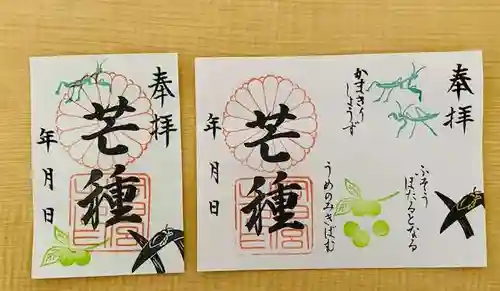 奉拝
芒種
年月日
奉拝
かまきりしょうず
ふそう
ほたるとなる
うめのみきばむ
芒種
年月日